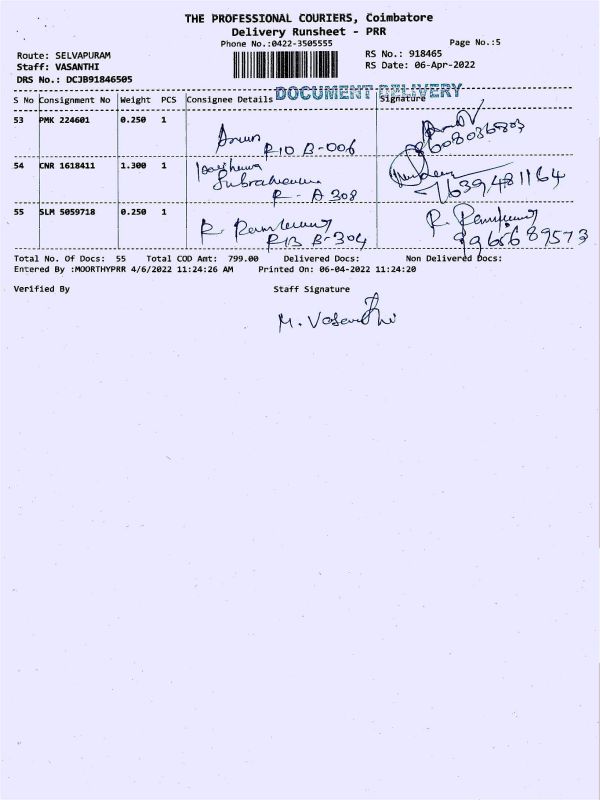 THE PROFESSIONAL COURIERS, Coimbatore
Delivery Runsheet - PRR
Phone No.:0422-3505555 Page No.:5
Route: SELVAPURAM RS No.: 918465
Staff: VASANTHI RS Date: 06-Apr-2022
DRS No.: DCJB91846505
DOCUMENT DELIVERY
S No Consignment No Weight PCS Consignee Details Signature
53 PMK 224601 0.250 1
Arun
R10 B-006
9608036803
54 CNR 1618411 1.300 1
Subrahaman
R - A 308
7639481164
55 SLM 5059718 0.250 1
R.
R13 B-304
R.
9965689573
Total No. Of Docs: 55 Total COD Amt: 799.00 Delivered Docs: Non Delivered Docs:
Entered By :MOORTHYPRR 4/6/2022 11:24:26 AM Printed On: 06-04-2022 11:24:20
Verified By Staff Signature
M. Vasanthi